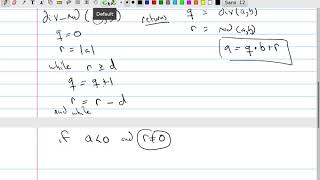 Sans 12
Default
div_mod ( returns q = div(a,b)
q = 0 r = mod(a,b)
r = |a| a = q·b+r
while r ≥ d
q = q+1
r = r - d
end while
if a<0 and r≠0